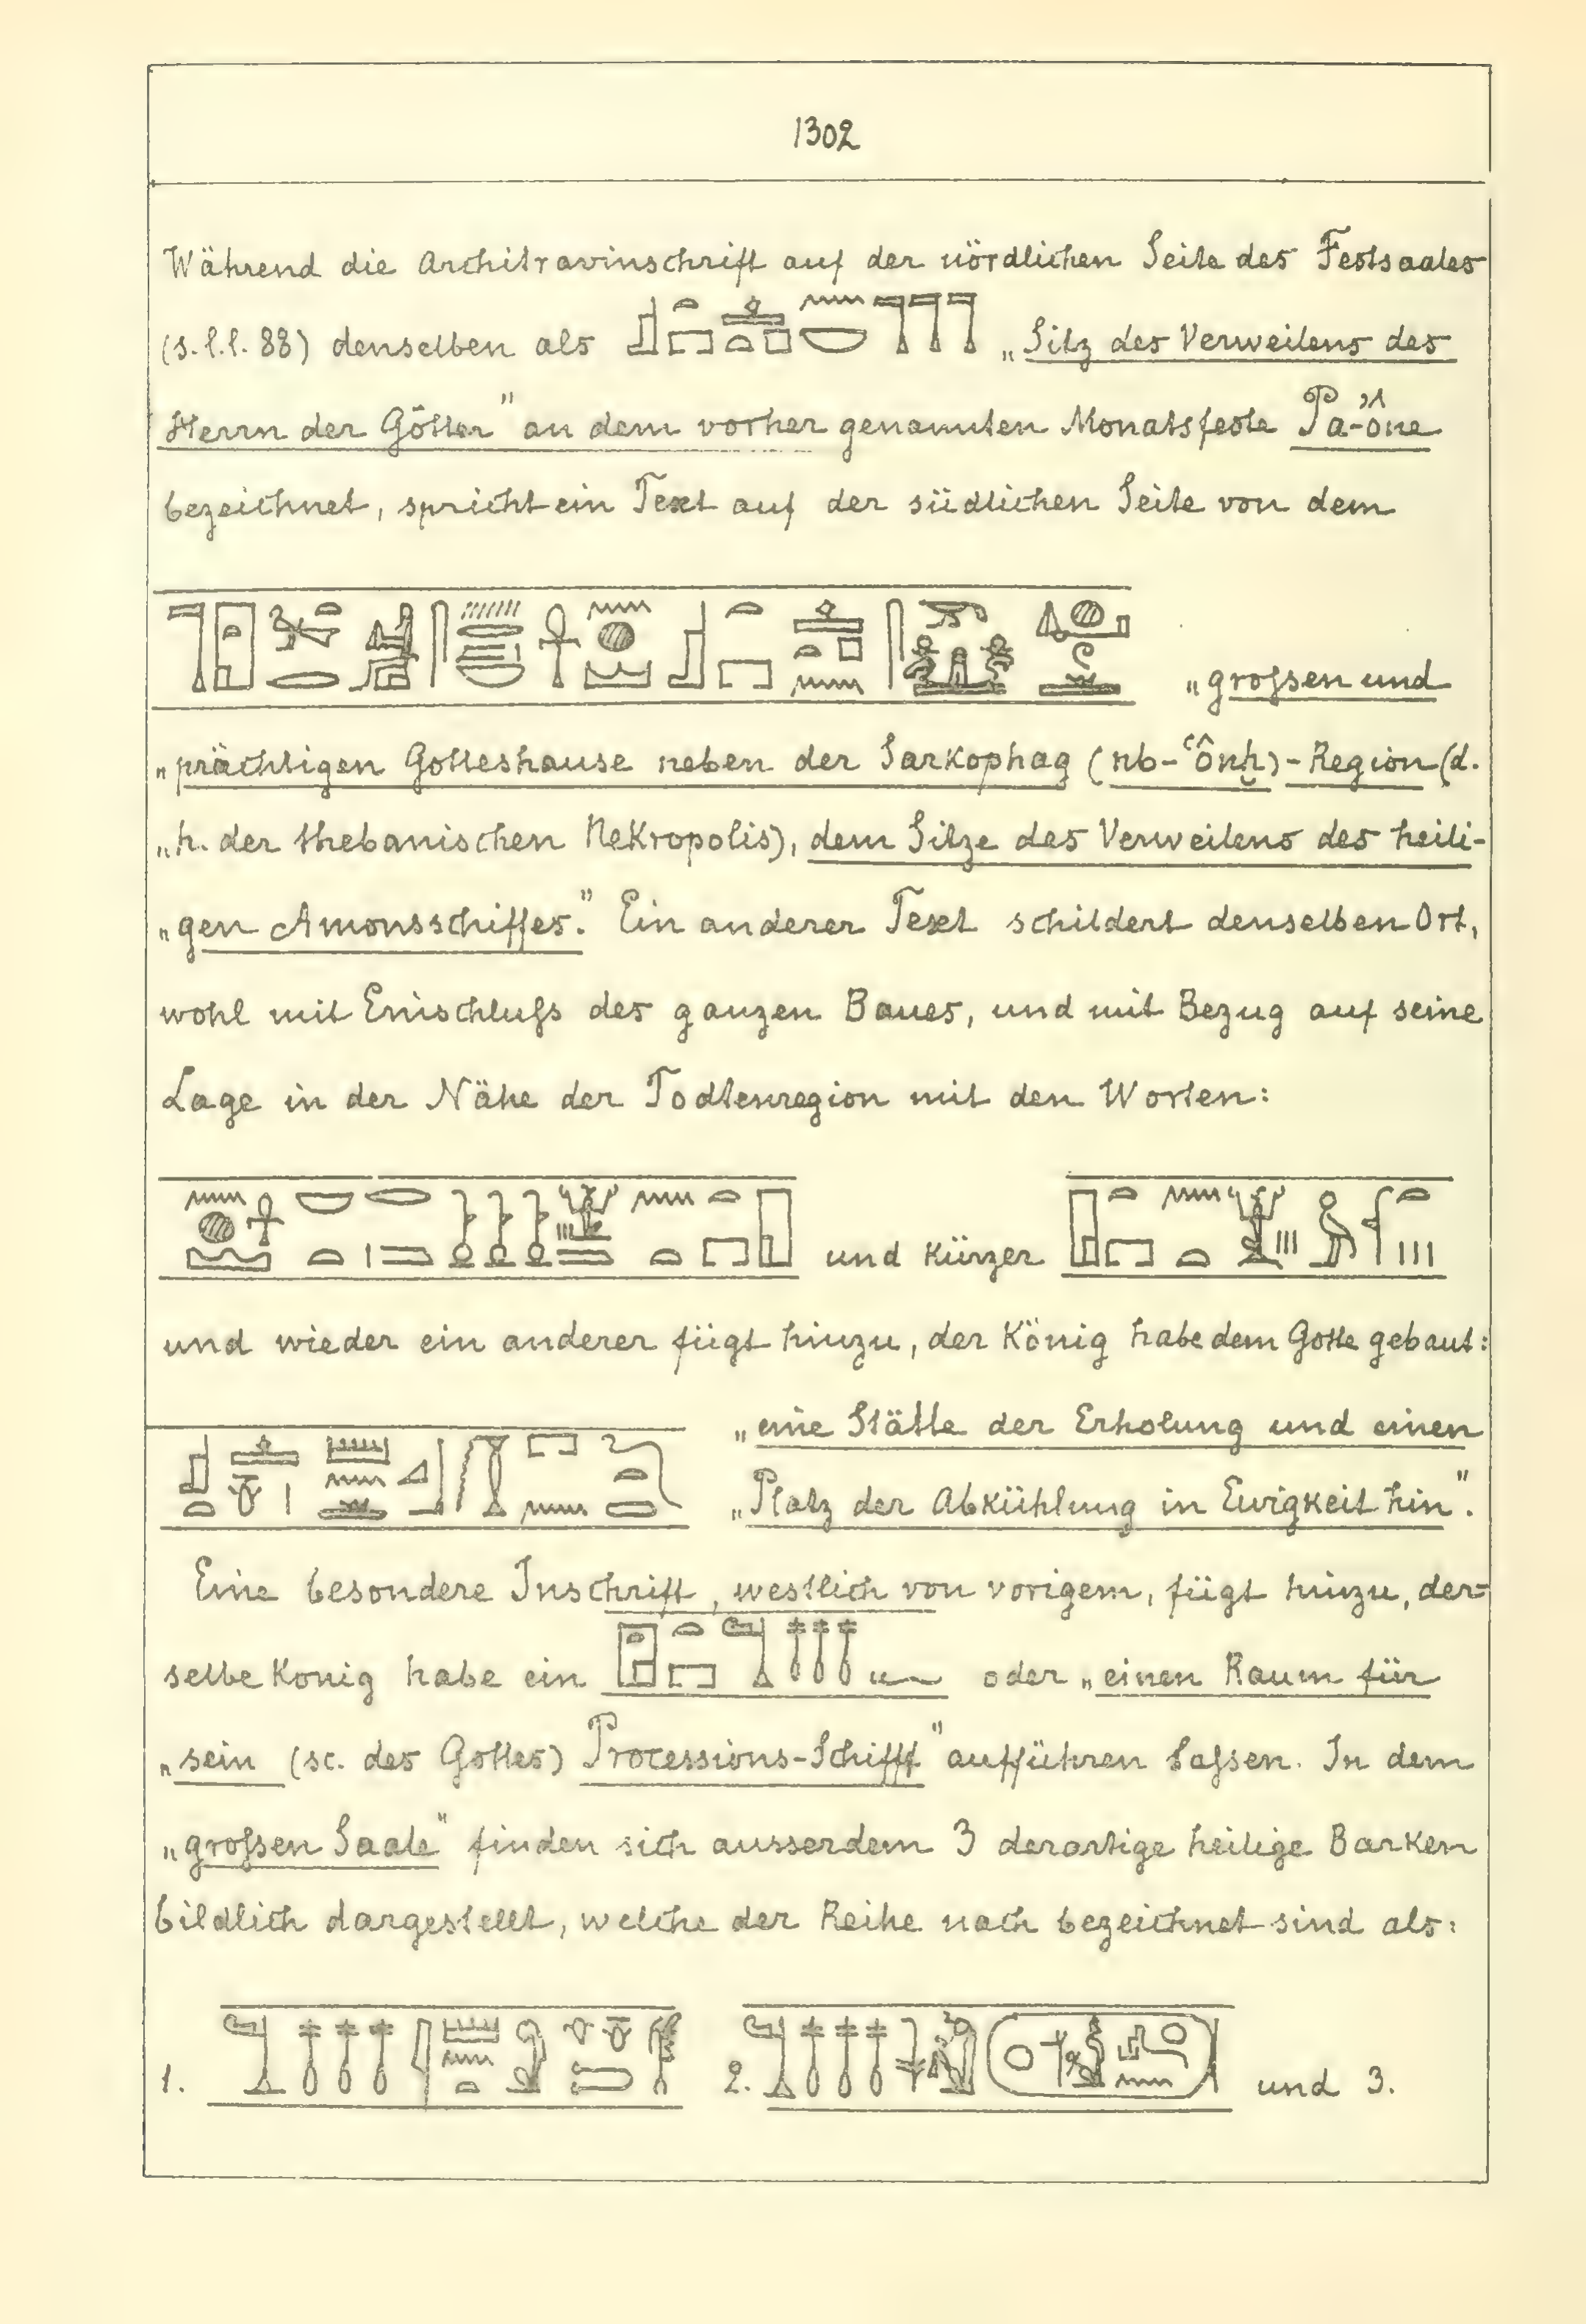 1302
Während die Architravinschrift auf der nördlichen Seite des Festsaales
(s. l. l. 88) denselben als „Sitz des Verweilens des
Herrn der Götter" an dem vorher genannten Monatsfeste Pa-ône
bezeichnet, spricht ein Text auf der südlichen Seite von dem
„grofsen und
„prächtigen Gotteshause neben der Sarkophag (nb-ʿônḫ)-Region (d.
„h. der thebanischen Nekropolis), dem Sitze des Verweilens des heili-
„gen Amonsschiffes." Ein anderer Text schildert denselben Ort,
wohl mit Einschlufs des ganzen Baues, und mit Bezug auf seine
Lage in der Nähe der Todtenregion mit den Worten:
und kürzer
und wieder ein anderer fügt hinzu, der König habe dem Gotte gebaut:
„eine Stätte der Erholung und einen
„Platz der Abkühlung in Ewigkeit hin".
Eine besondere Inschrift, westlich von vorigem, fügt hinzu, der-
selbe König habe ein oder „einen Raum für
„sein (sc. des Gottes) Processions-Schifff" aufführen lafsen. In dem
„grofsen Saale" finden sich ausserdem 3 derartige heilige Barken
bildlich dargestellt, welche der Reihe nach bezeichnet sind als:
1. 2. und 3.